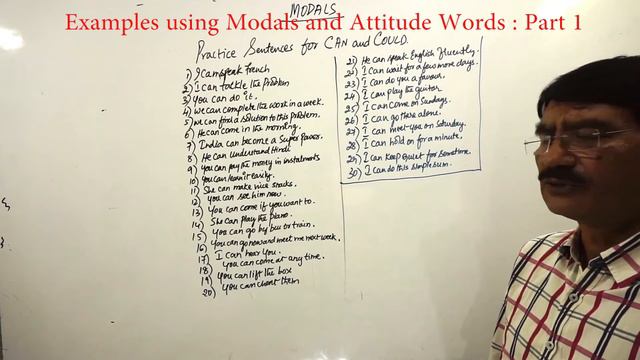 MODALS
Examples using Modals and Attitude Words : Part 1
Practice Sentences for CAN and COULD.
1) I Can speak French
2) I Can tackle the Problem
3) You can do it.
4) We can complete the work in a week.
5) We can find a solution to this problem.
6) He can come in the morning.
7) India can become a Super Power.
8) He can understand Hindi
9) You can pay the money in instalments
10) You can learn it easily.
11) She can make nice snacks.
12) You can see him now.
13) You can come if you want to.
14) She can play the piano.
15) You can go by bus or train.
16) You can go now and meet me next week.
17) I can hear you.
18) You can come at any time.
19) You can lift the box
20) You can them
21) He can speak English fluently.
22) I can wait for a few more days.
23) I can do you a favour.
24) I can play the guitar
25) I can come on Sundays.
26) I can go there alone.
27) I can meet you on Saturday.
28) I can hold on for a minute.
29) I can keep quiet for sometime.
30) I can do this simple sum.